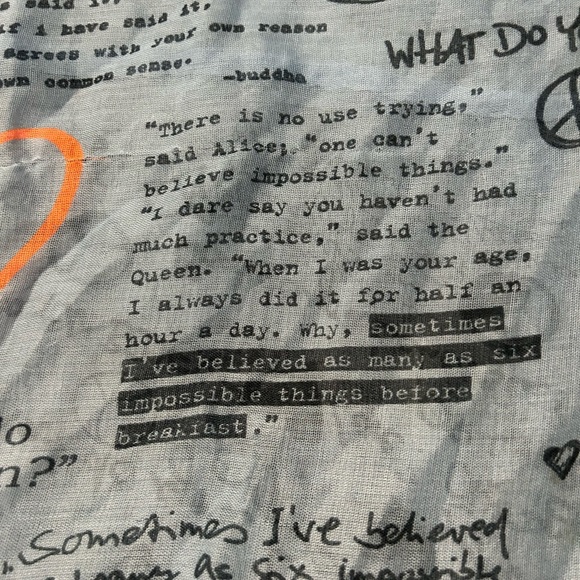 said it,
if i have said it,
agrees with your own reason
own common sense.
-buddha
WHAT DO
"There is no use trying,"
said Alice; "one can't
believe impossible things."
"I dare say you haven't had
much practice," said the
Queen. "When I was your age,
I always did it for half an
hour a day. Why, sometimes
I've believed as many as six
impossible things before
breakfast."
?"
"Sometimes I've believed
as six impossible